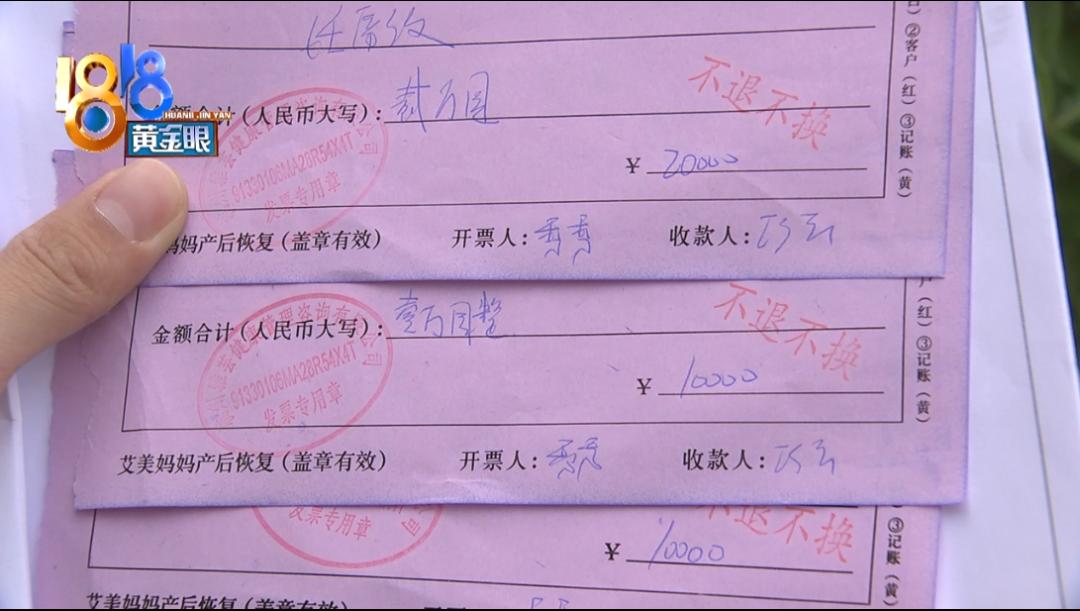 1818
HUANG JIN YAN
黄金眼
②客户(红)③记账(黄)
不退不换
额合计(人民币大写):贰万圆
¥ 20000
91330106MA28R54X4T
发票专用章
妈妈产后恢复(盖章有效) 开票人: 收款人:
(红)③记账(黄)
不退不换
金额合计(人民币大写):壹万圆整
¥ 10000
健康管理咨询有限公司
91330106MA28R54X4T
发票专用章
艾美妈妈产后恢复(盖章有效) 开票人: 收款人:
③记账(黄)
不退不换
¥ 10000
发票专用章
艾美妈妈产后恢复(盖章有效)